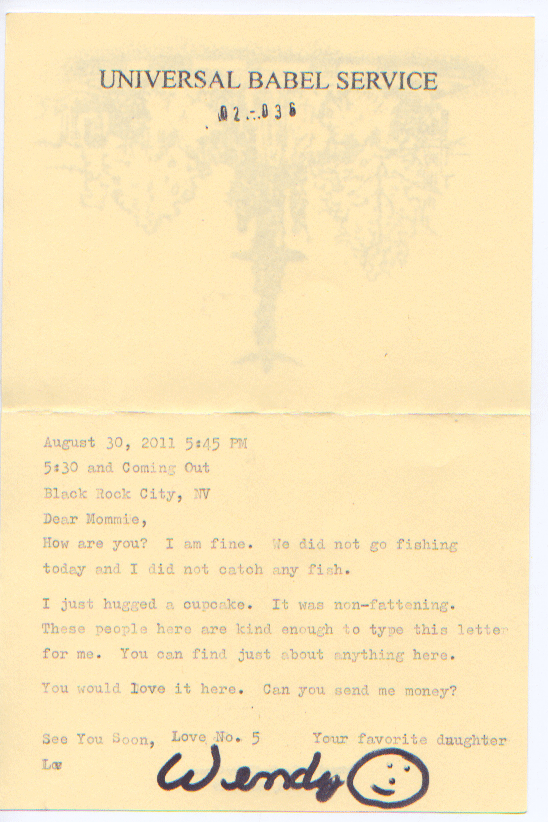 UNIVERSAL BABEL SERVICE
02-036
August 30, 2011 5:45 PM
5:30 and Coming Out
Black Rock City, NV
Dear Mommie,
How are you?  I am fine.  We did not go fishing
today and I did not catch any fish.
I just hugged a cupcake.  It was non-fattening.
These people here are kind enough to type this letter
for me.  You can find just about anything here.
You would love it here.  Can you send me money?
See You Soon,  Love No. 5  Your favorite daughter
Wendy